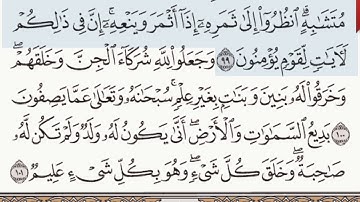 مُتَشَٰبِهٍۗ ٱنظُرُوٓا۟ إِلَىٰ ثَمَرِهِۦٓ إِذَآ أَثْمَرَ وَيَنْعِهِۦٓۚ إِنَّ فِى ذَٰلِكُمْ
لَءَايَٰتٍ لِّقَوْمٍ يُؤْمِنُونَ ٩٩ وَجَعَلُوا۟ لِلَّهِ شُرَكَآءَ ٱلْجِنَّ وَخَلَقَهُمْۖ
وَخَرَقُوا۟ لَهُۥ بَنِينَ وَبَنَٰتٍۭ بِغَيْرِ عِلْمٍۚ سُبْحَٰنَهُۥ وَتَعَٰلَىٰ عَمَّا يَصِفُونَ
١٠٠ بَدِيعُ ٱلسَّمَٰوَٰتِ وَٱلْأَرْضِۖ أَنَّىٰ يَكُونُ لَهُۥ وَلَدٌ وَلَمْ تَكُن لَّهُۥ
صَٰحِبَةٌۖ وَخَلَقَ كُلَّ شَىْءٍۖ وَهُوَ بِكُلِّ شَىْءٍ عَلِيمٌ ١٠١